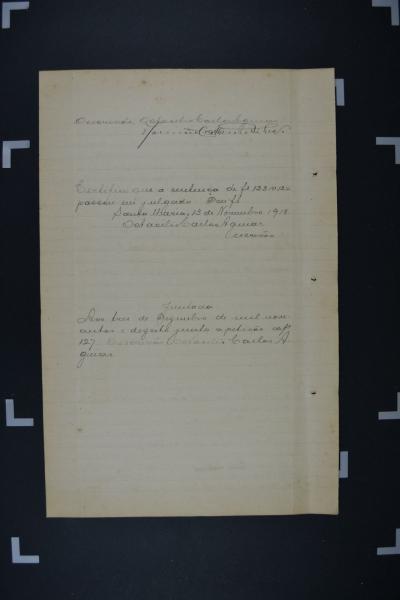 Escrivão Octacilio Carlos Aguiar
Certifico que a sentença de fs 123 v 12
passou em julgado Dou fé
Santa Maria, 13 de Novembro 1918
Octacilio Carlos Aguiar
Escrivão
Juntada
Aos tres de Dezembro de mil nove
centos e dezoito junto a petição a fs
127 Escrivão Octacilio Carlos A
guiar